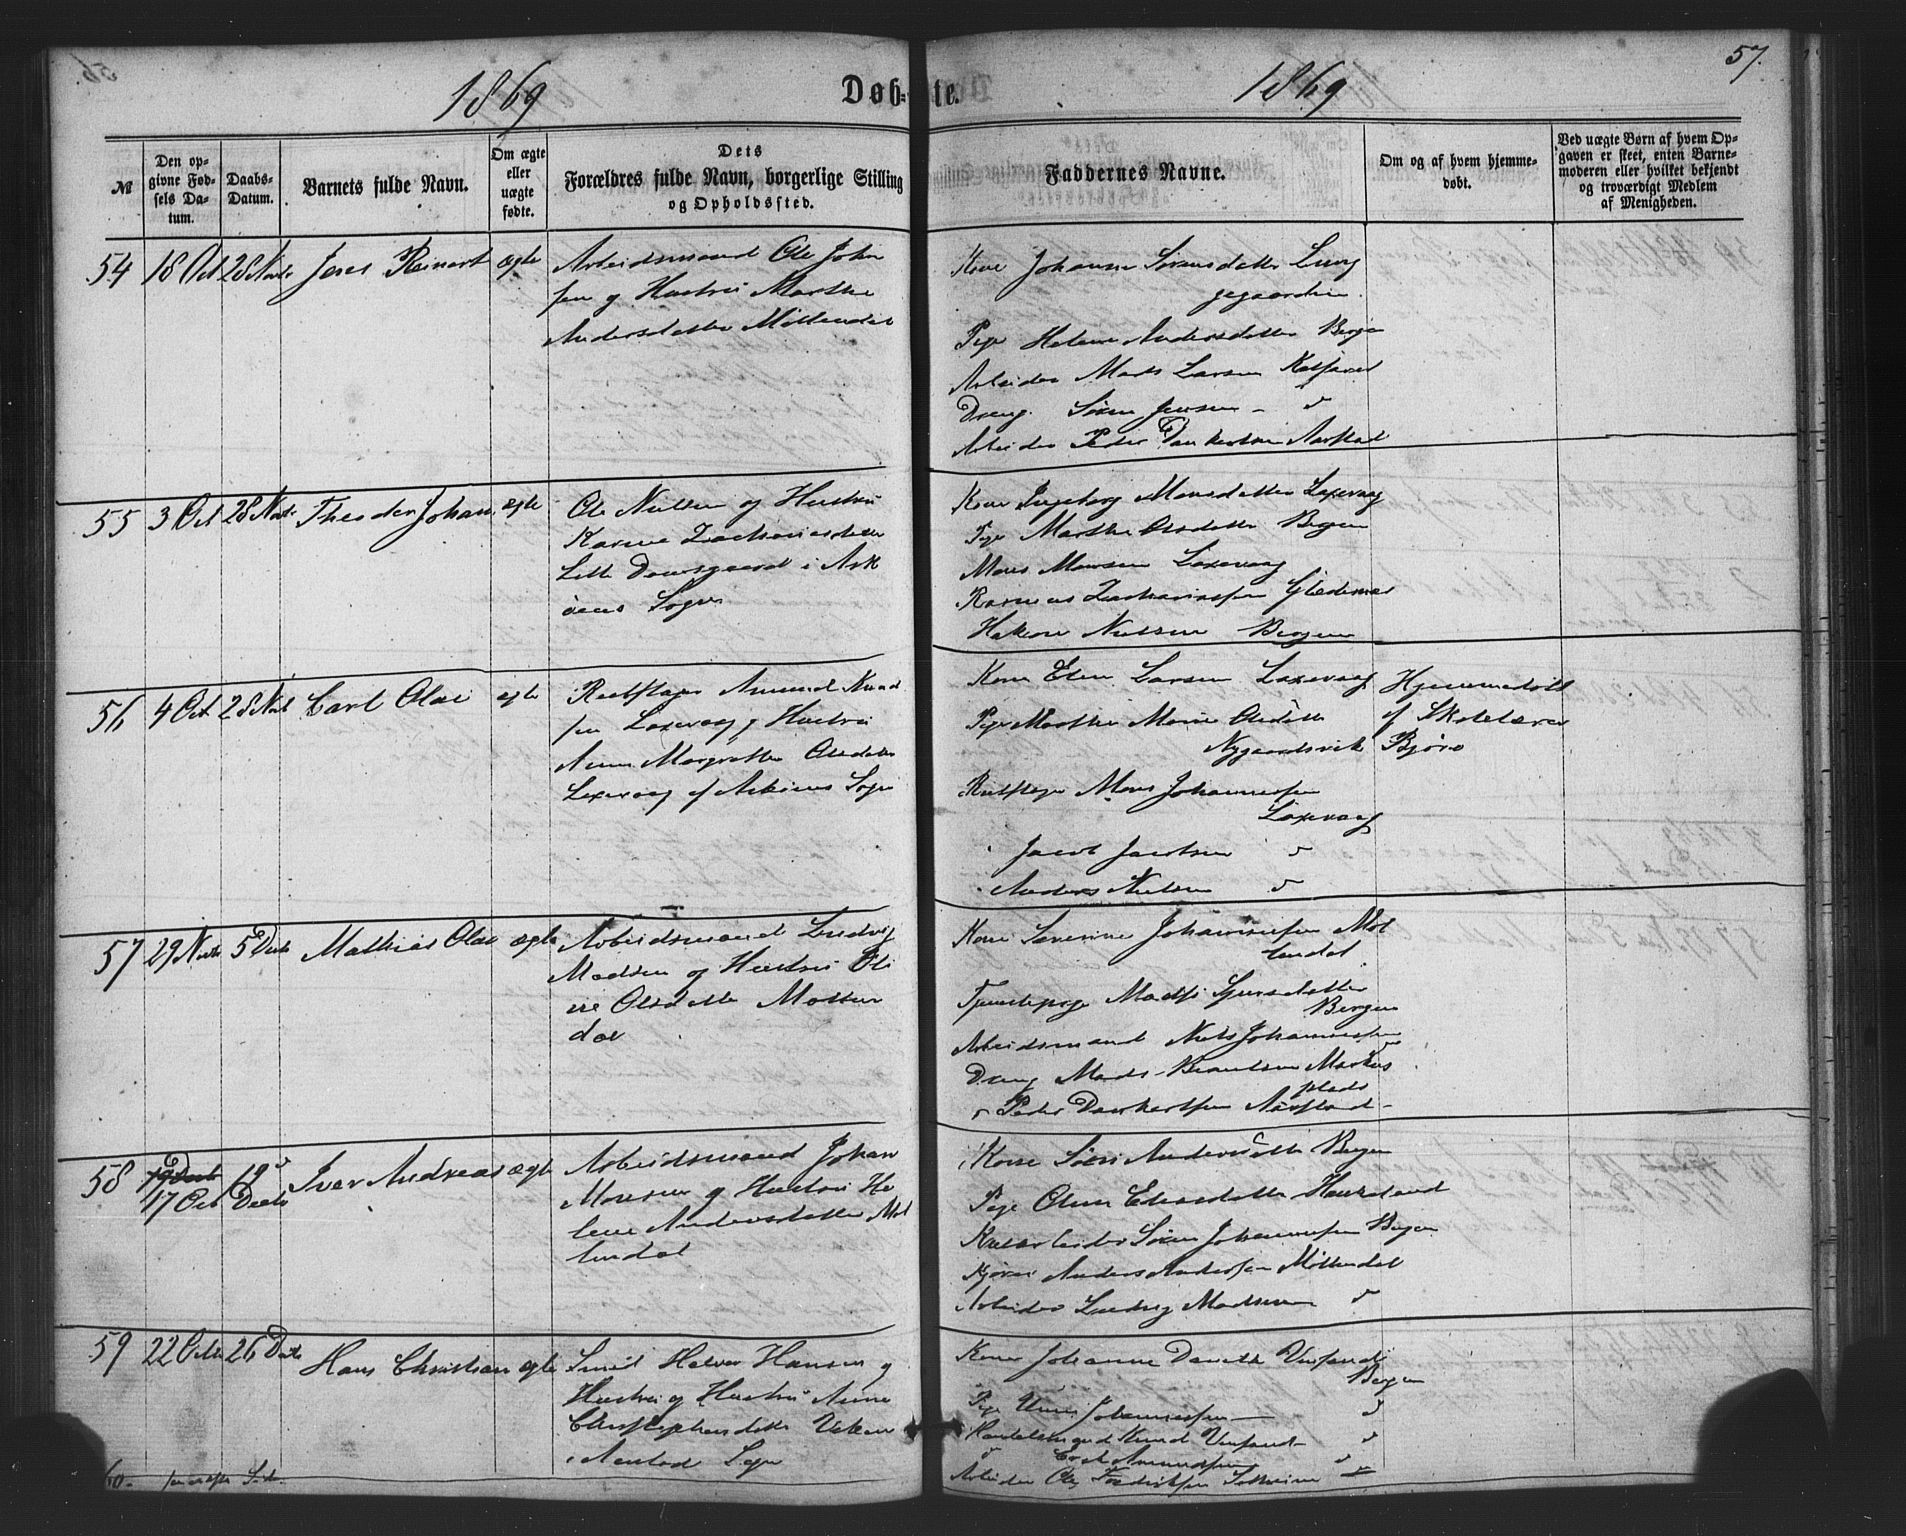 1869
Døb-
te.
1869
57.
№
Den op-
givne Fød-
sels Da-
tum.
Daabs-
Datum.
Barnets fulde Navn.
Om ægte
eller
uægte
fødte.
Dets
Forældres fulde Navn, borgerlige Stilling
og Opholdssted.
Faddernes Navne.
Om og af hvem hjemme-
døbt.
Ved uægte Børn af hvem Op-
gaven er skeet, enten Barne-
moderen eller hvilket bekjendt
og troværdigt Medlem
af Menigheden.
54 18 Oct 28 Novb Reinert ægte
Arbeidsmand Ole John
sen og Hustru Marthe
Andersdatter Møllendal
Kone Johanne Sørensdatter Lung
gegaarden
Pige Helene Andersdatter Bergen
Arbeider Mads Larsen
Dreng Søren Jensen
Arbeider Peder Dankertsen Aarstad
55 3 Oct 28 Novb Theodor Johan ægte
Ole Nielsen og Hustru
Karen Zachariasdatter
Lille Damsgaard i Ask
øens Sogn
Kone Ingeborg Monsdatter Laxevaag
Pige Marthe Olsdatter Bergen
Mons Monsen Laxevaag
Rasmus Zachariassen
Hakon Nielsen Bergen
56 4 Oct 28 Novb Carl Olai ægte
Reebslager Amund Knud
sen Laxevaag og Hustru
Anne Margrethe Olsdatter
Laxevaag af Askøens Sogn
Kone Elen Larsen Laxevaag
Pige Marthe Marie Olsdatter
Nygaardsvik
Reebslager Mons Johannessen
Laxevaag
Jacob Jacobsen
Anders Nielsen
Hjemmedøbt
af Skolelærer
Bjøro
57 29 Novb 5 Decb Mathias Olai ægte
Arbeidsmand Ludvig
Madsen og Hustru Oli
ne Olsdatter Møllen
dal
Kone Severine Johannessen Møl
lendal
Tjenestepige
Bergen
Arbeidsmand Niels Johannessen
Dreng Mads Markus
plads
Peder Dankertsen Aarstad
58 17 Oct 19 Decb Iver Andreas ægte
Arbeidsmand Johan
Monsen og Hustru He
lene Andersdatter Møl
lendal
Kone Andersdatter Bergen
Pige Oline Haukeland
Søren Johannessen Bergen
Kjører Anders Andersen Møllendal
Arbeider Ludvig Madsen
59 22 Octb 26 Decb Hans Christian ægte
Smed Halvor Hansen og
Hustru og Hustru Anne
Christophersdatter
i Aarstad Sogn
Kone Johanne
Bergen
Pige Johannessen
Handelsmand Knud
Amundsen
Arbeider Ole Fredriksen Solheim
60. Side.